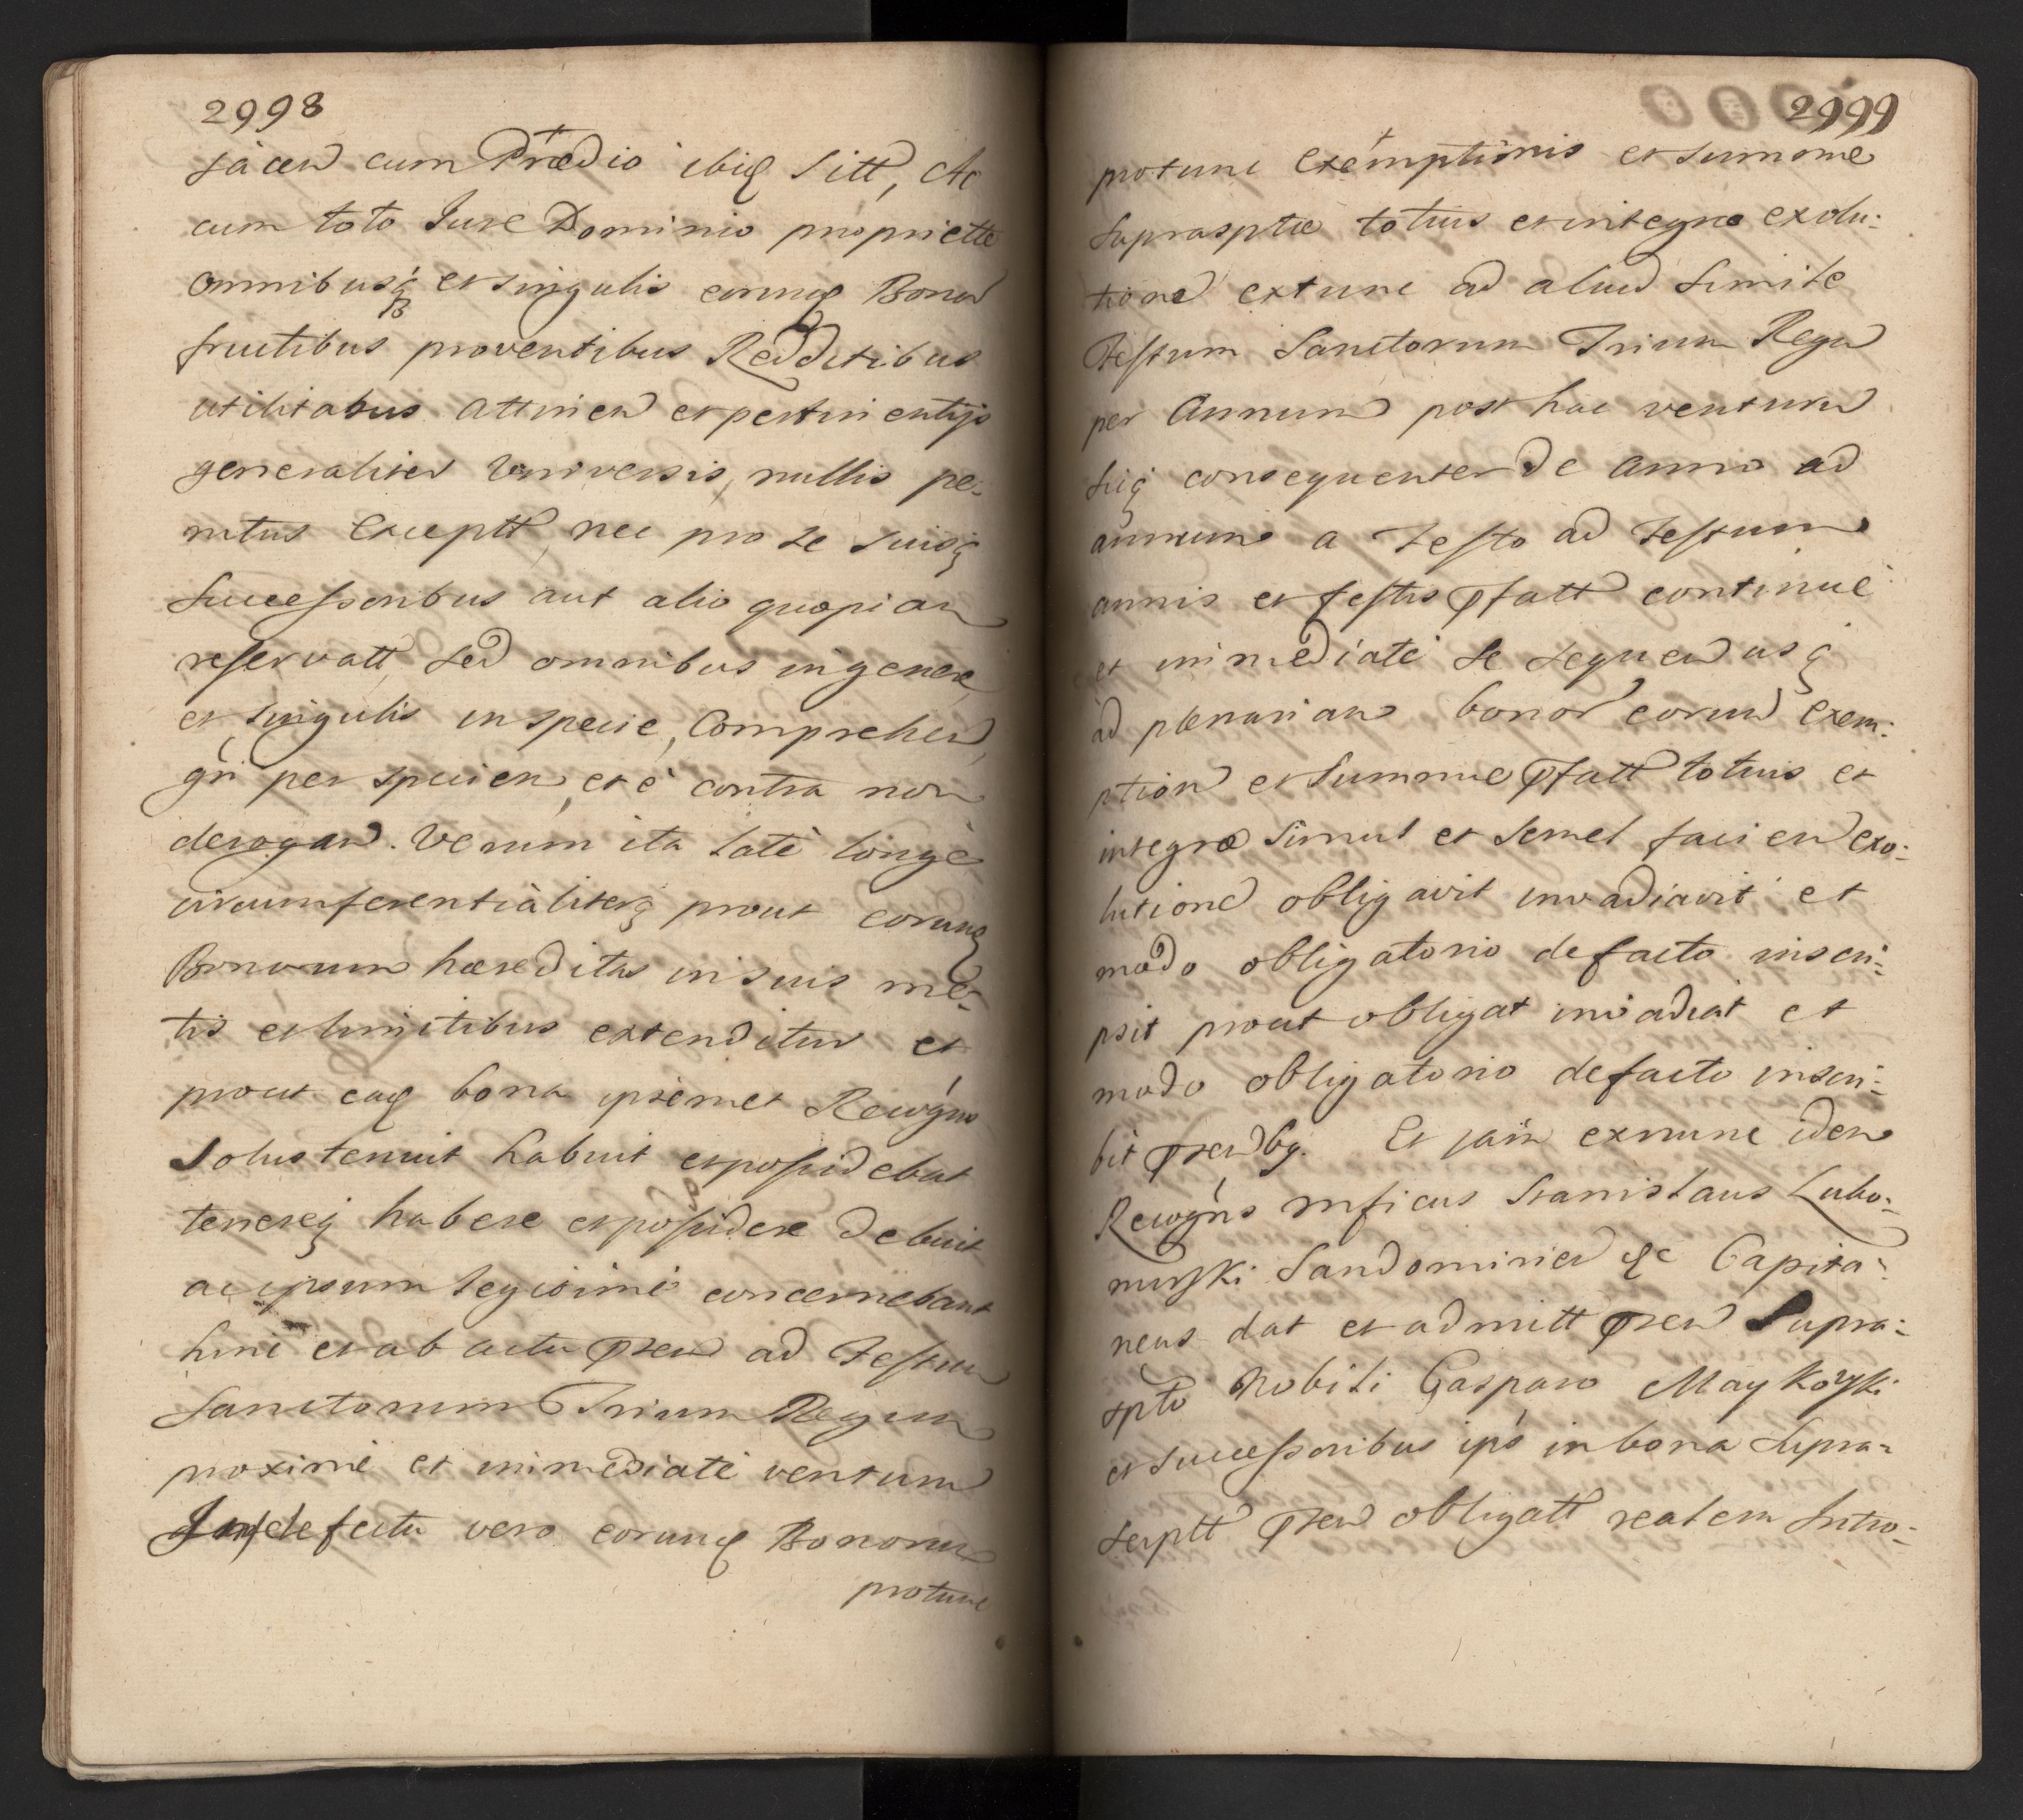 2998
jacen cum Prædio ibiq sitt, Ac
cum toto Jure Dominio propriette
omnibusq et singulis eorunq Bonor
fructibus proventibus Redditibus
utilitatibus attinen et pertinentijs
generaliter Universis, nullis pe-
nitus exceptt, nec pro se suisq
Successoribus aut alio quopiam
reservatt, sed omnibus in genere
et singulis in specie, Comprehen,
gñ per speciem, et è contra non
derogan. Verum ita latè longè
circumferentialiterq prout eorunq
Bonorum hæreditas in suis me-
tis et limitibus extenditur et
prout eaq bona ipsemet Recogñs
Solus tenuit habuit et possidebat
tenereq habere et possidere debuit
ac ipsum legitimè concernebant
hinc et ab actu pnten ad Festum
Sanctorum Trium Regum
proximè et immediatè ventum
In defectu vero eorunq Bonorum
protunc
2999
protunc exemptionis et summæ
Suprasptæ totius et integræ exolu:
tione extunc ad aliud simile
Festum Sanctorum Trium Regu
per Annum post hac venturu
sicq consequenter de anno ad
annum a Festo ad Festum
annis et festis pfatt continuè
et immediatè se sequen usq
ad plenariam bonor eorum exem:
ption et Summæ pfatt totius et
integræ simul et semel facien exo:
lutione obligavit invadiavit et
modo obligatorio de facto inscri:
psit prout obligat invadiat et
modo obligatorio de facto inscri:
bit pntenbq. Et jam exnunc idem
Recogñs mficus Stanislaus Lubo:
mirski Sandominien &c Capita:
neus dat et admitt pnten Supra:
spto Nobili Casparo Maykowski
et successoribus ipś in bona Supra-
scriptt pnten obligatt realem Intro-